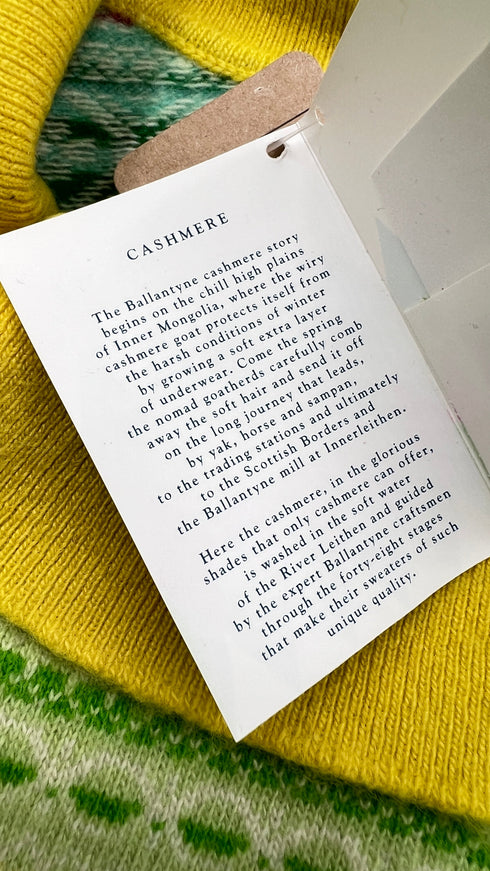 CASHMERE
The Ballantyne cashmere story
begins on the chill high plains
of Inner Mongolia, where the wiry
cashmere goat protects itself from
the harsh conditions of winter
by growing a soft extra layer
of underwear. Come the spring
the nomad goatherds carefully comb
away the soft hair and send it off
on the long journey that leads,
by yak, horse and sampan,
to the trading stations and ultimately
to the Scottish Borders and
the Ballantyne mill at Innerleithen.
Here the cashmere, in the glorious
shades that only cashmere can offer,
is washed in the soft water
of the River Leithen and guided
by the expert Ballantyne craftsmen
through the forty-eight stages
that make their sweaters of such
unique quality.